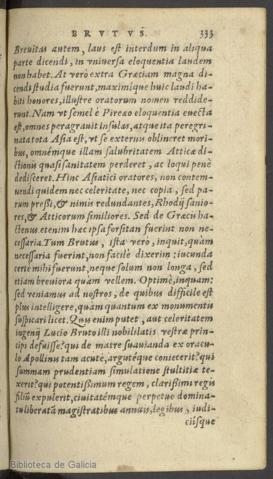 BRVTVS. 333
Breuitas autem, laus est interdum in aliqua
parte dicendi, in vniuersa eloquentia laudem
non habet. At verò extra Græciam magna di-
cendi studia fuerunt, maximique huic laudi ha-
biti honores, illustre oratorum nomen reddide-
runt. Nam vt semel è Pireæo eloquentia euecta
est, omnes peragrauit insulas, atque ita peregri-
nata tota Asia est, vt se externis oblineret mori-
bus, omnémque illam salubritatem Atticæ di-
ctionis quasi sanitatem perderet, ac loqui penè
dedisceret. Hinc Asiatici oratores, non contem-
nendi quidem nec celeritate, nec copia, sed pa-
rum pressi, & nimis redundantes, Rhodij sanio-
res, & Atticorum similiores. Sed de Græcis ha-
ctenus etenim hæc ipsa forsitan fuerint non ne-
cessaria. Tum Brutus, ista verò, inquit, quàm
necessaria fuerint, non facilè dixerim: iucunda
certè mihi fuerunt, neque solùm non longa, sed
etiam breuiora quàm vellem. Optimè, inquam:
sed veniamus ad nostros, de quibus difficile est
plus intelligere, quàm quantum ex monumentis
suspicari licet. Quis enim putet, aut celeritatem
ingenij Lucio Bruto illi nobilitatis vestræ prin-
cipi defuisse? qui de matre suauianda ex oracu-
lo Apollinis tam acutè, argutéque coniecerit? qui
summam prudentiam simulatione stultitiæ te-
xerit? qui potentissimum regem, clarissimi regis
filiũ expulerit, ciuitatémque perpetuo domina-
tu liberatã magistratibus annuis, legibus, iudi-
ciísque
Biblioteca de Galicia